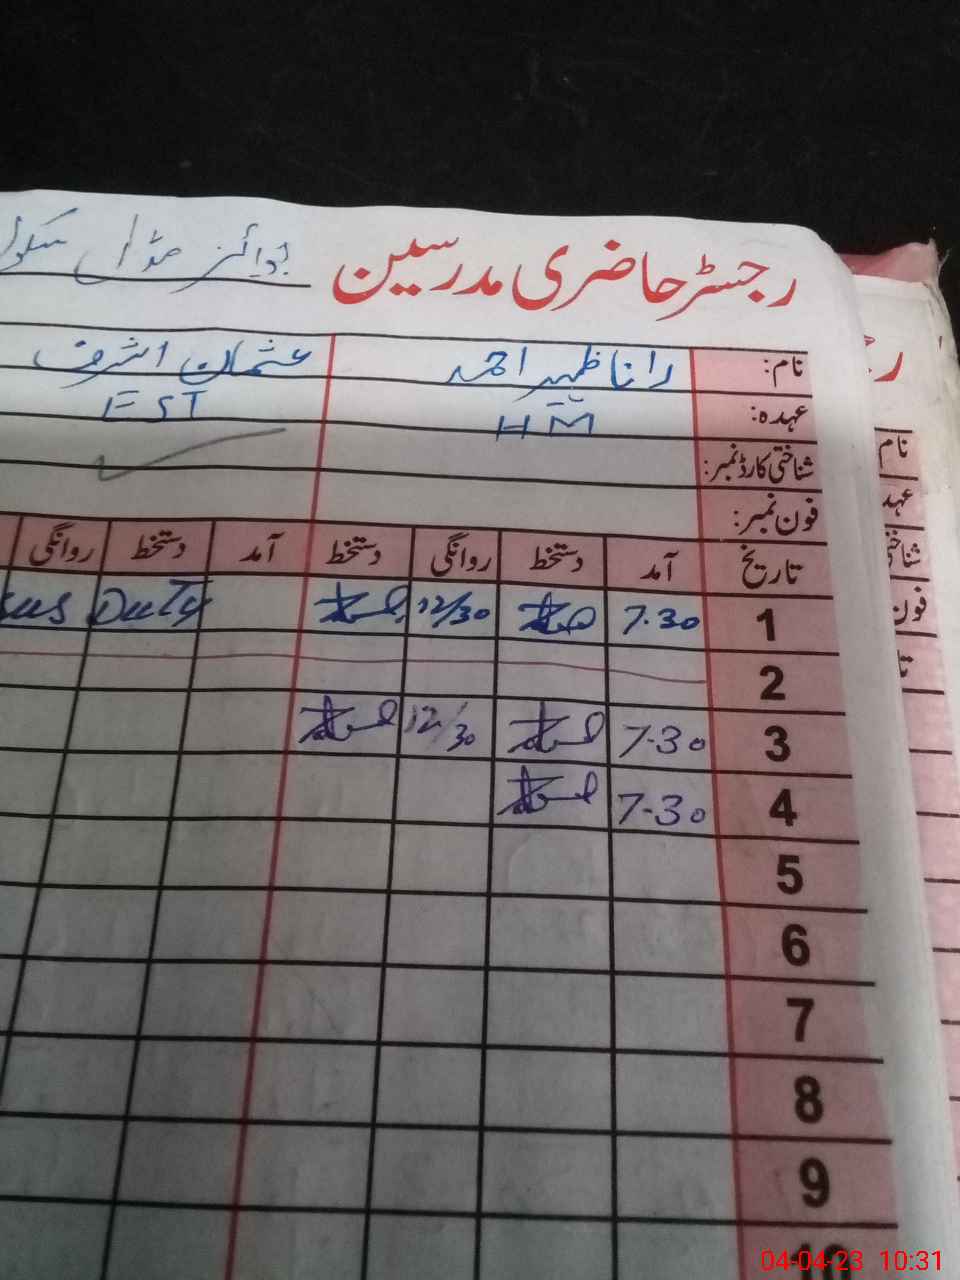 رجسٹر حاضری مدرسین بوائز مڈل سکول
نام: رانا ظہیر احمد عثمان اشرف
عہدہ: HM EST
شناختی کارڈ نمبر:
فون نمبر:
تاریخ آمد دستخط روانگی دستخط آمد دستخط روانگی
1 7.30 12/30 Duty
2
3 7-30 12/30
4 7-30
5
6
7
8
9
10
نام
عہد
شناختی
فون
تا
04-04-23 10:31